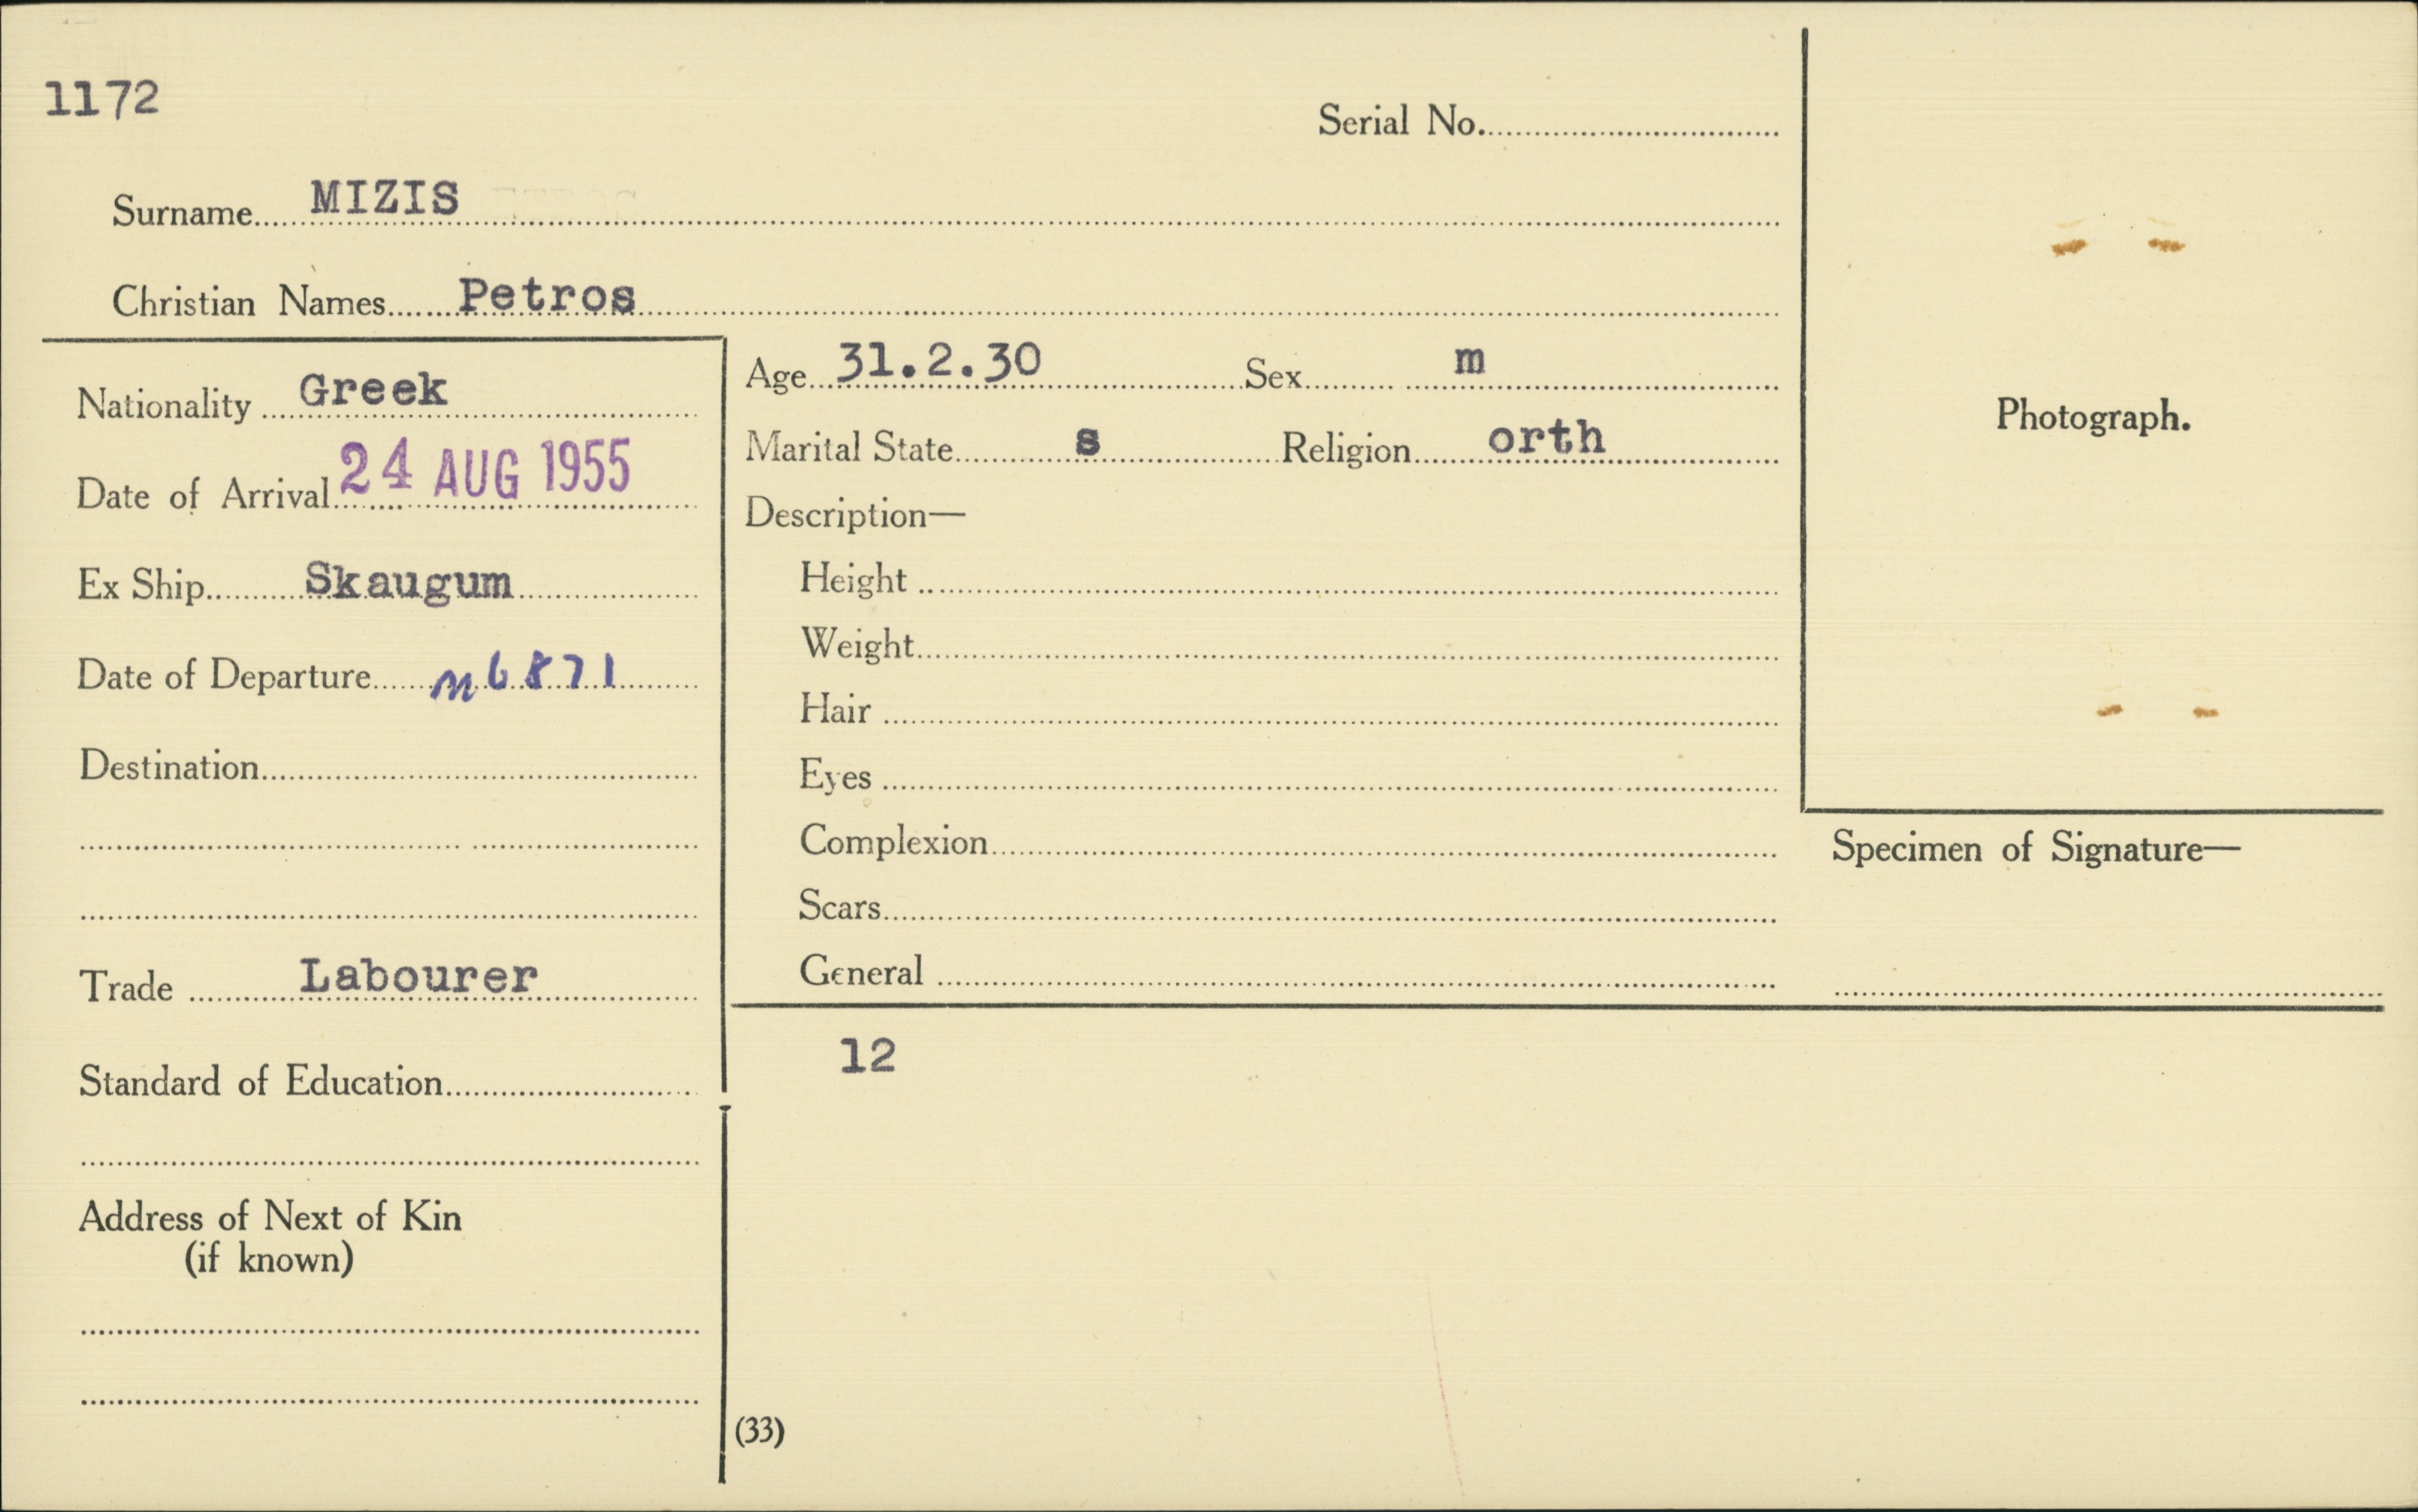 1172
Serial No.
Surname MIZIS
Christian Names Petros
Nationality Greek
Date of Arrival 24 AUG 1955
Ex Ship Skaugum
Date of Departure m6871
Destination
Trade Labourer
Standard of Education
Address of Next of Kin
(if known)
Age 31.2.30 Sex m
Marital State s Religion orth
Description—
Height
Weight
Hair
Eyes
Complexion
Scars
General
12
(33)
Photograph.
Specimen of Signature—